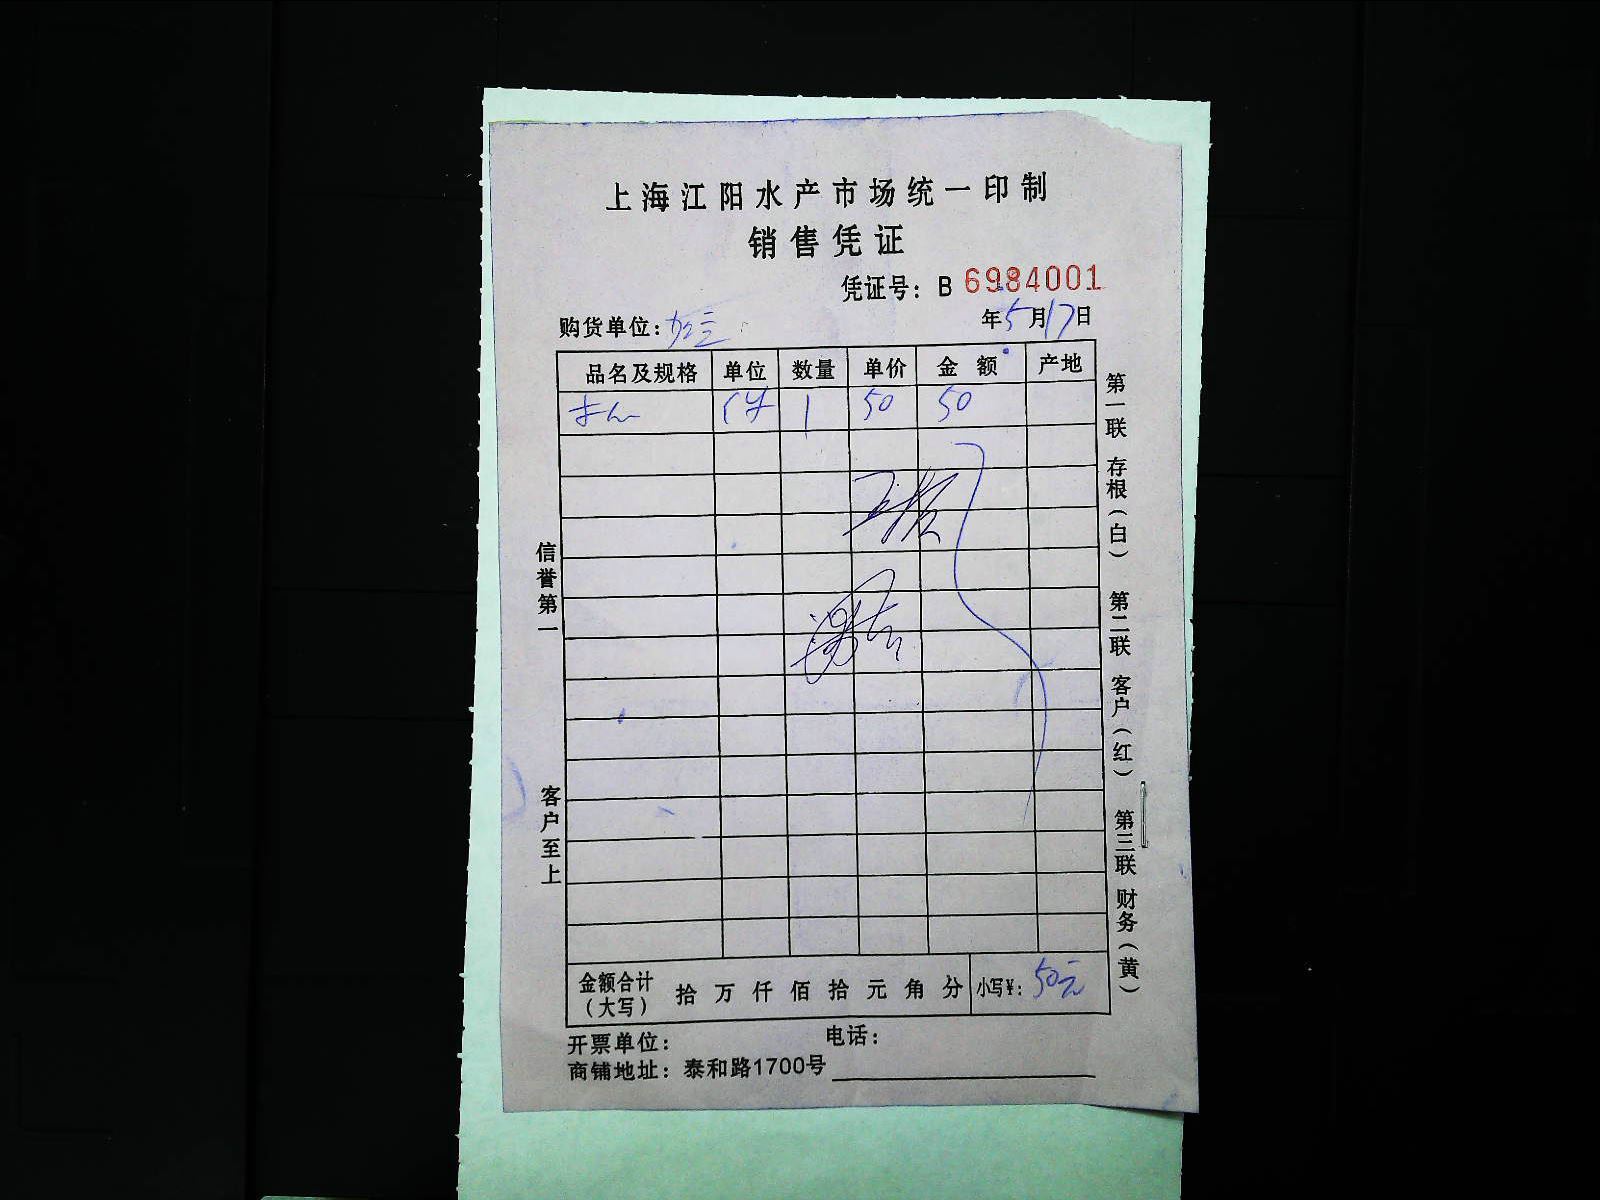 上海江阳水产市场统一印制
销售凭证
凭证号：B 6984001
购货单位：
年5月17日
品名及规格 单位 数量 单价 金额 产地
件 1 50 50
信誉第一
客户至上
第一联 存根（白） 第二联 客户（红） 第三联 财务（黄）
金额合计（大写） 拾 万 仟 佰 拾 元 角 分 小写¥：50元
开票单位： 电话：
商铺地址：泰和路1700号